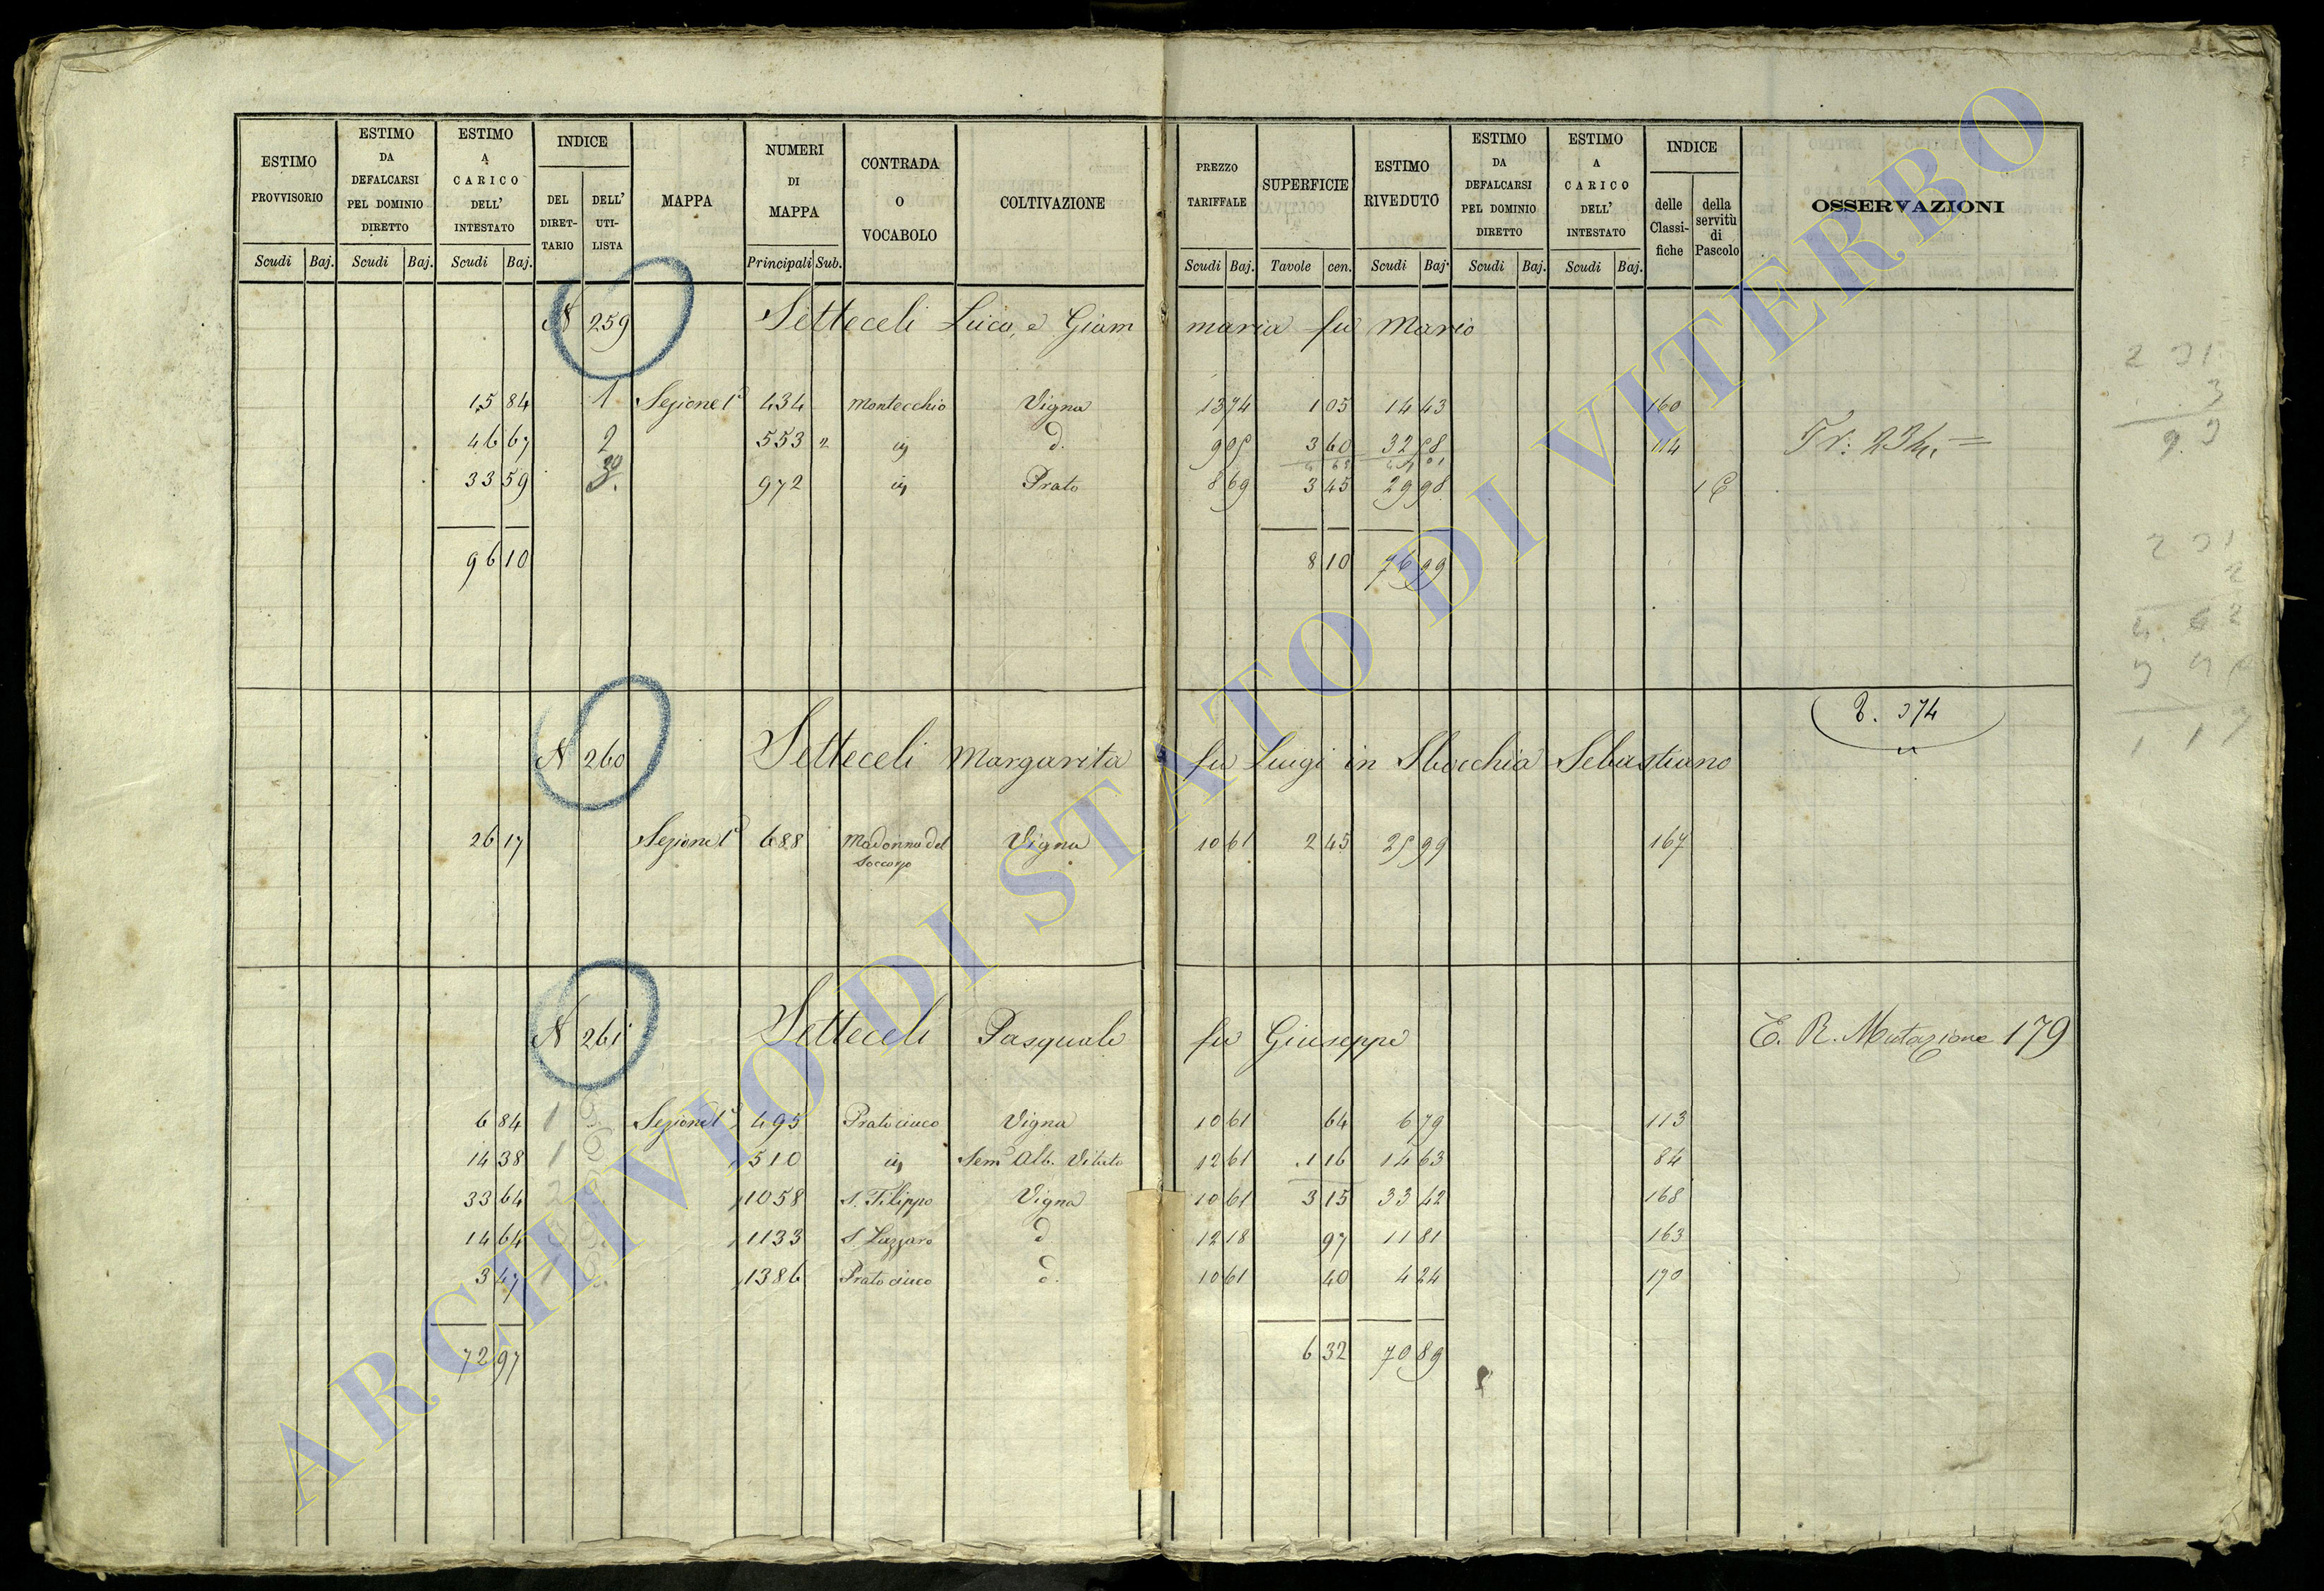 ESTIMO PROVVISORIO
ESTIMO DA DEFALCARSI PEL DOMINIO DIRETTO
ESTIMO A CARICO DELL' INTESTATO
INDICE
DEL DIRET-TARIO
DELL' UTI-LISTA
MAPPA
NUMERI DI MAPPA
CONTRADA O VOCABOLO
COLTIVAZIONE
PREZZO TARIFFALE
SUPERFICIE
ESTIMO RIVEDUTO
ESTIMO DA DEFALCARSI PEL DOMINIO DIRETTO
ESTIMO A CARICO DELL' INTESTATO
INDICE
delle Classi-fiche
della servitù di Pascolo
OSSERVAZIONI
Scudi Baj. Scudi Baj. Scudi Baj. Principali Sub. Scudi Baj. Tavole cen. Scudi Baj. Scudi Baj. Scudi Baj.
N 259 Setteceli Luca, e Giam maria fu Mario
15 84 1 Sezione 1a 434 Montecchio Vigna 13 74 1 05 14 43 160
46 67 2 553 2 id d. 9 05 3 60 32 58 114 Tr: 234. =
33 59 3. 972 id Prato 8 69 3 45 29 98 1 C
96 10 8 10 76 99
P. 374
N 260 Setteceli Margarita fu Luigi in Sbocchia Sebastiano
26 17 Sezione 1a 688 Madonna del Soccorso Vigna 10 61 2 45 25 99 167
N 261 Setteceli Pasquale fu Giuseppe E. R. Mutazione 179
6 84 1 Sezione 1a 495 Prato cieco Vigna 10 61 64 6 79 113
14 38 1 510 id Sem. Alb. Vitato 12 61 1 16 14 63 84
33 64 2 1058 S. Filippo Vigna 10 61 3 15 33 42 168
14 64 1133 S. Lazzaro d 12 18 97 11 81 163
3 47 1 1386 Prato cieco d. 10 61 40 4 24 170
72 97 6 32 70 89
ARCHIVIO DI STATO DI VITERBO